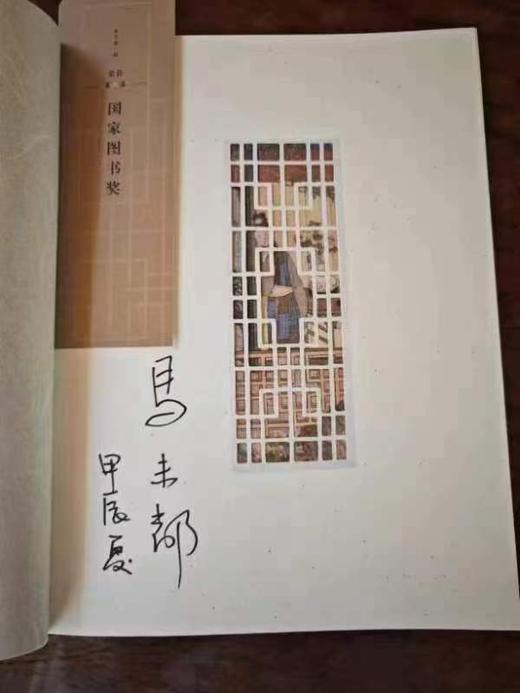 国家图书奖
马未都
甲辰夏